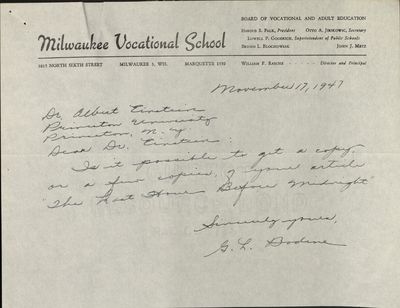 BOARD OF VOCATIONAL AND ADULT EDUCATION
Milwaukee Vocational School
1015 NORTH SIXTH STREET MILWAUKEE 3, WIS. MARQUETTE
President OTTO A. JIRIKOWIC, Secretary
LOWELL P. GOODRICH, Superintendent of Public Schools
JOHN J. METZ
WILLIAM F. RASCHE - - - - - Director and Principal
November 17, 1947
Dr. Albert Einstein
Princeton University
Princeton, N. J.
Dear Dr. Einstein:
Is it possible to get a copy,
or a few copies, of your article
"The Last Hour Before Midnight"
Sincerely yours,
G. L.